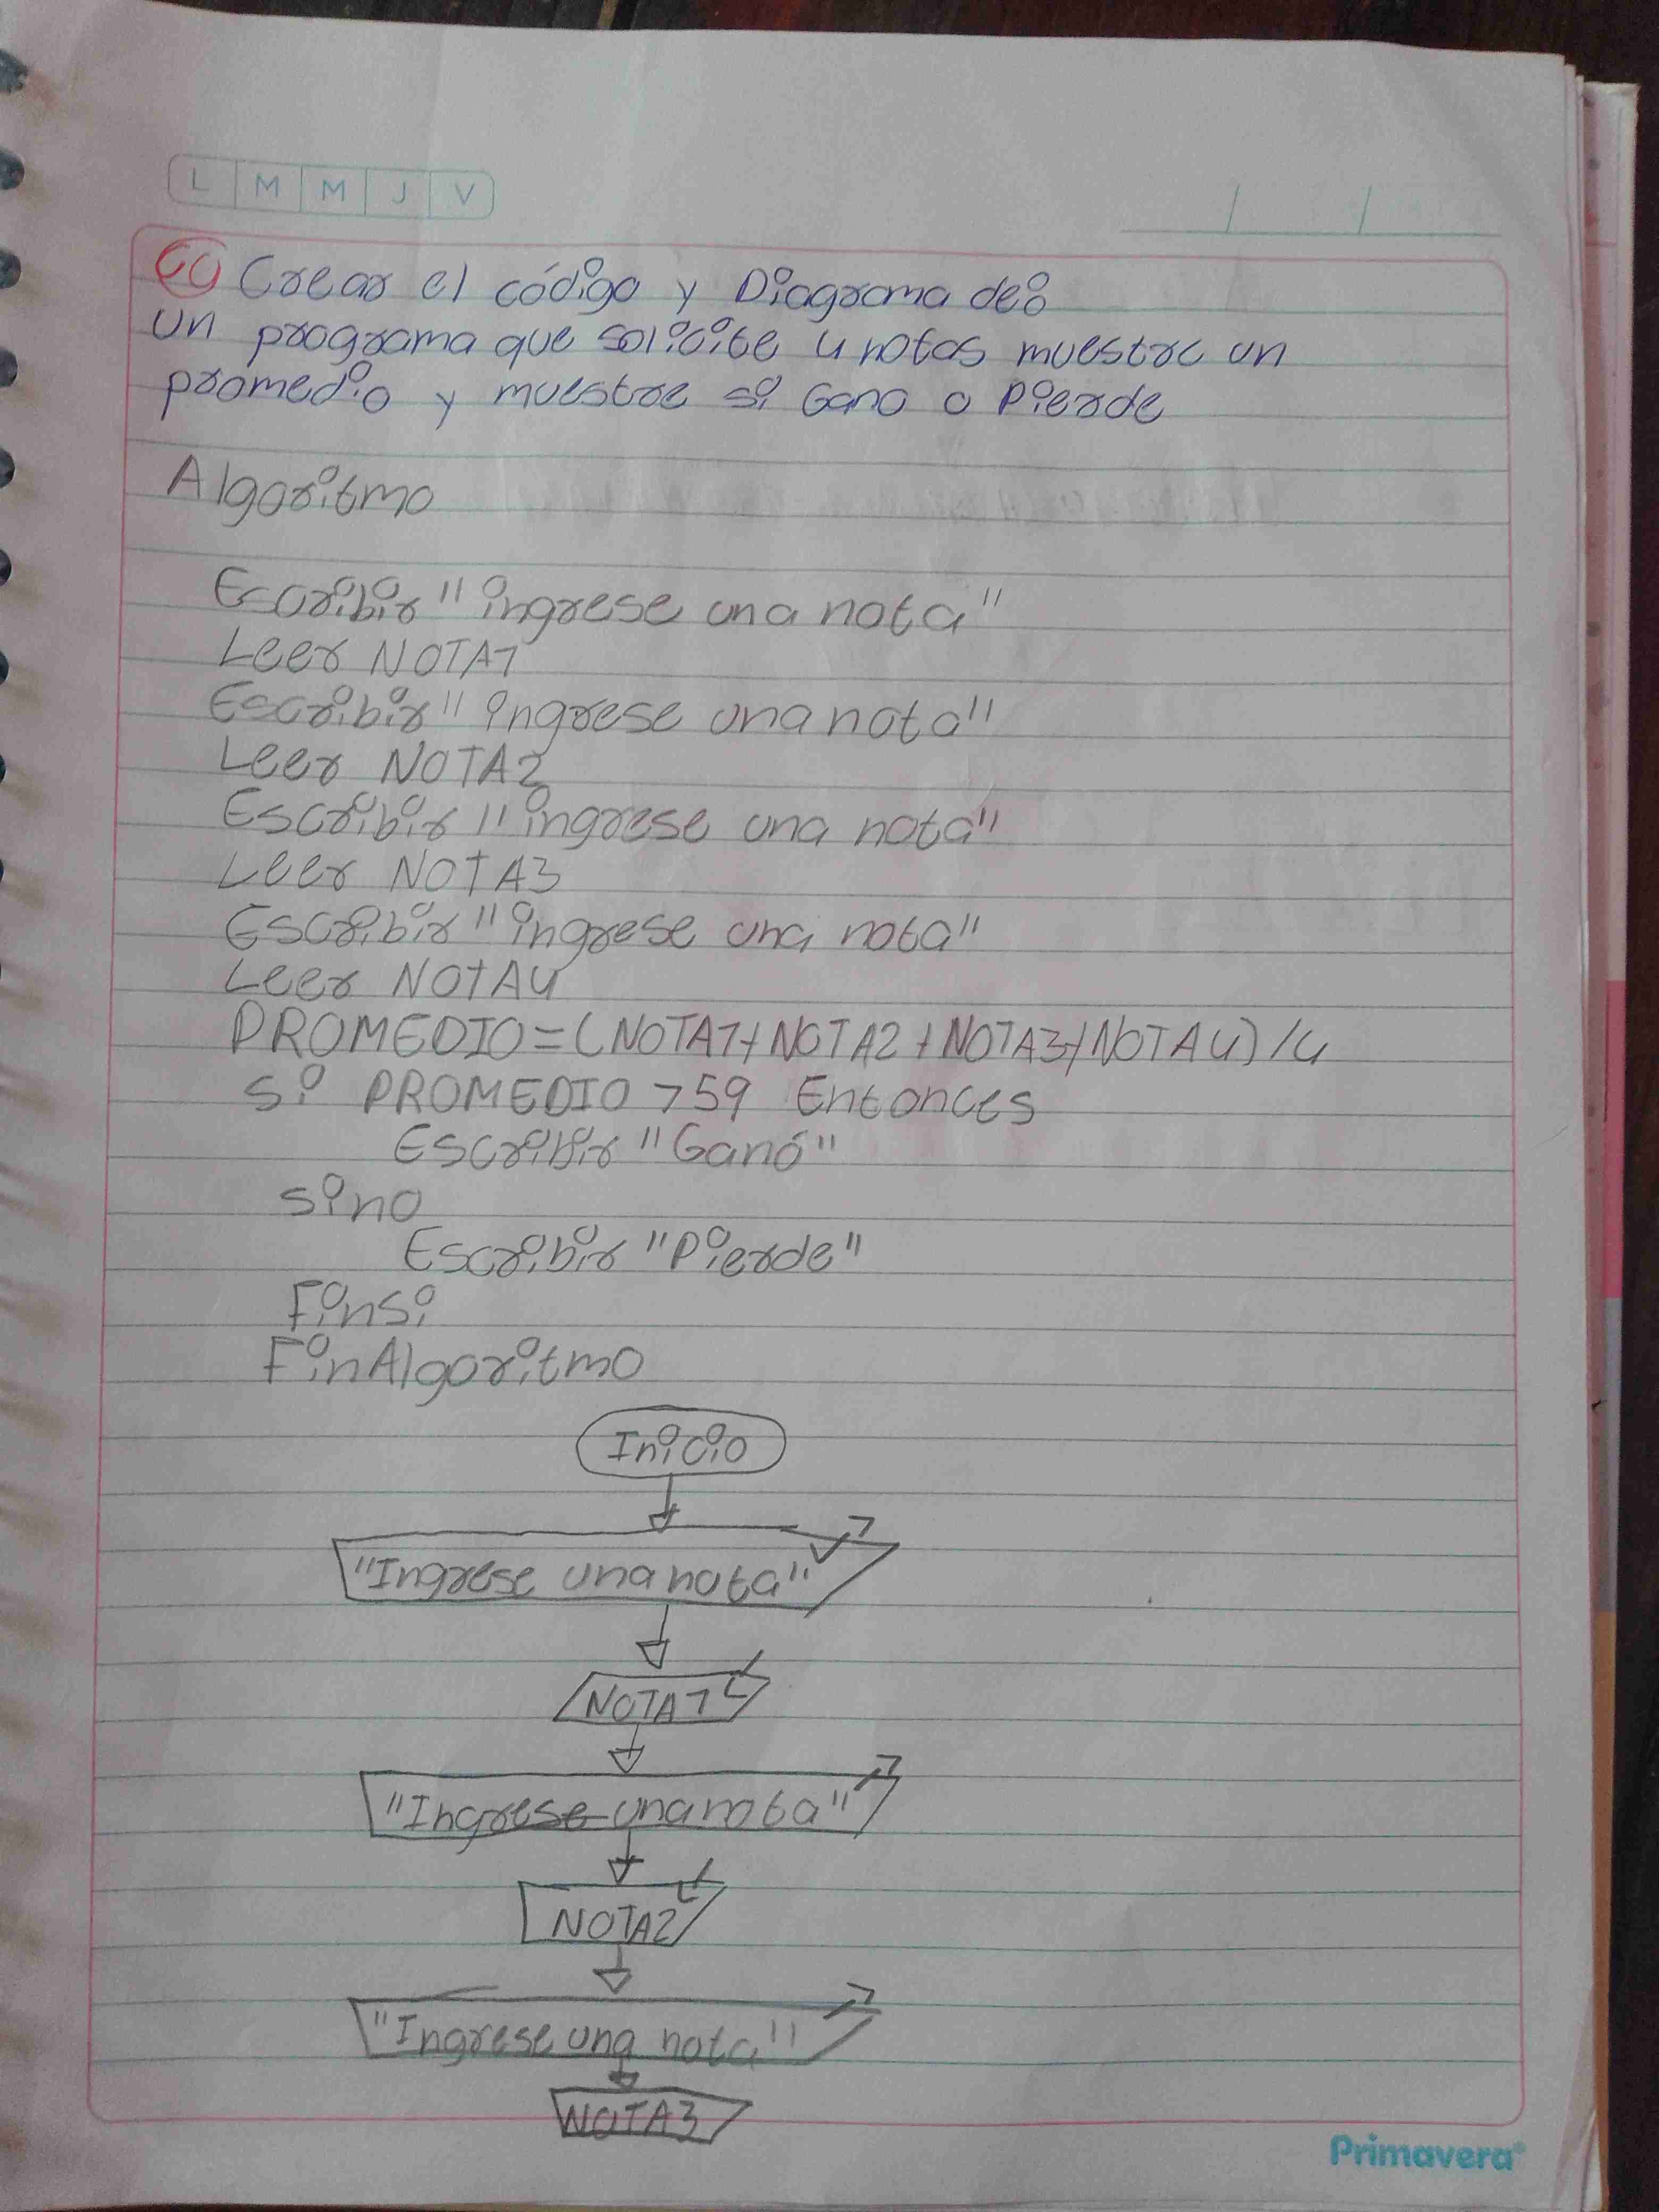 L M M J V
Crear el código y Diagrama de:
un programa que solicite 4 notas muestre un
promedio y muestre si Gano o Pierde
Algoritmo
Escribir "ingrese una nota"
Leer NOTA1
Escribir "ingrese una nota"
Leer NOTA2
Escribir "ingrese una nota"
Leer NOTA3
Escribir "ingrese una nota"
Leer NOTA4
PROMEDIO=(NOTA1+NOTA2+NOTA3+NOTA4)/4
Si PROMEDIO >59 Entonces
Escribir "Ganó"
sino
Escribir "Pierde"
Finsi
FinAlgoritmo
Inicio
"Ingrese una nota"
NOTA1
"Ingrese una nota"
NOTA2
"Ingrese una nota"
NOTA3
Primavera